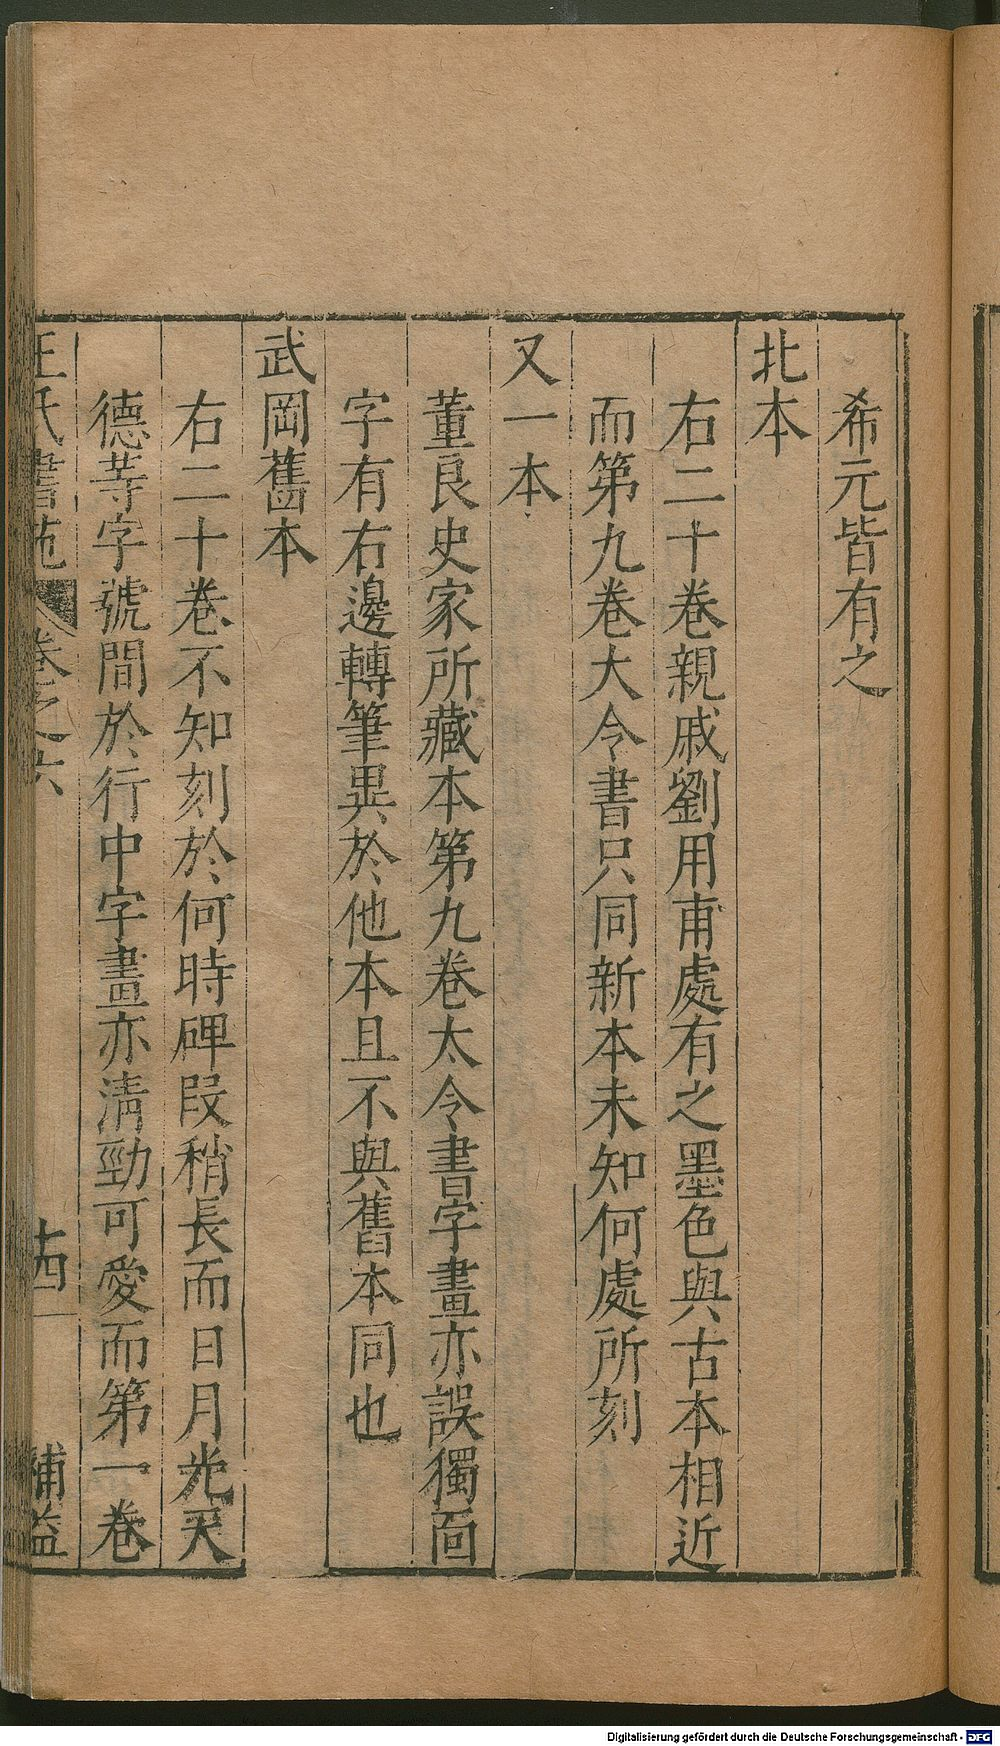 希元皆有之
北本
右二十卷親戚劉用甫處有之墨色與古本相近
而第九卷大令書只同新本未知何處所刻
又一本
董良史家所藏本第九卷太令書字畫亦誤獨面
字有右邊轉筆異於他本且不與舊本同也
武岡舊本
右二十卷不知刻於何時碑段稍長而日月光天
德等字號間於行中字畫亦淸勁可愛而第一卷
王氏書苑 卷之六 十四 補益
Digitalisierung gefördert durch die Deutsche Forschungsgemeinschaft - DFG